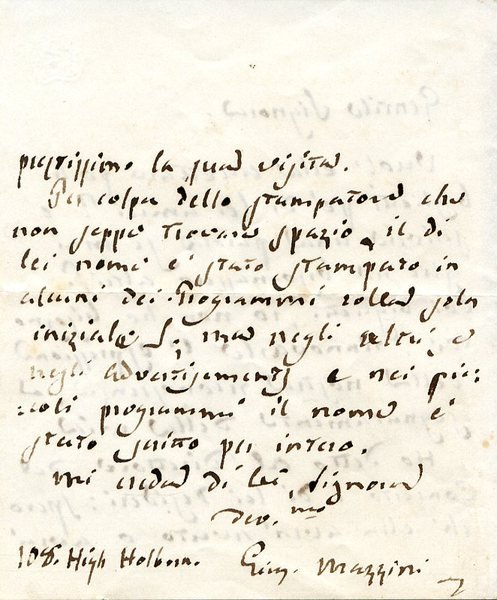 prestissimo la sua visita.
Per colpa dello stampatore che
non seppe trovare spazio, il di
lei nome è stato stampato in
alcuni dei Programmi colla sola
iniziale S, ma negli altri, e
negli advertisements e nei pic-
-coli programmi il nome è
stato scritto per intero.
Mi creda di lei, Signora
Dev.mo
108. High Holborn. Gius. Mazzini